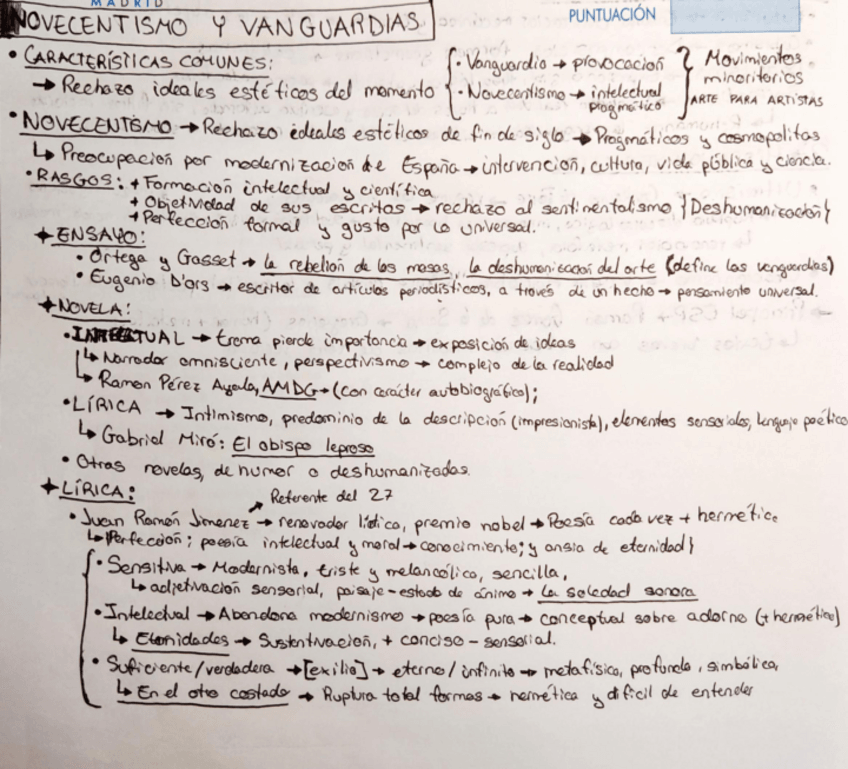 MADRID
PUNTUACIÓN
NOVECENTISMO Y VANGUARDIAS
• CARACTERÍSTICAS COMUNES:
→ Rechazo ideales estéticos del momento { • Vanguardia → provocación
• Novecentismo → intelectual pragmático } Movimientos minoritarios
ARTE PARA ARTISTAS
• NOVECENTISMO → Rechazo ideales estéticos de fin de siglo → Pragmáticos y cosmopolitas
↳ Preocupación por modernización de España → intervención, cultura, vida pública y ciencia.
• RASGOS: + Formación intelectual y científica
+ Objetividad de sus escritos → rechazo al sentimentalismo {Deshumanización}
+ Perfección formal y gusto por lo universal.
+ ENSAYO:
• Ortega y Gasset → la rebelión de las masas, la deshumanización del arte (define las vanguardias)
• Eugenio D'ors → escritor de artículos periodísticos, a través de un hecho → pensamiento universal.
+ NOVELA:
• INTELECTUAL → trama pierde importancia → exposición de ideas
↳ Narrador omnisciente, perspectivismo → complejo de la realidad
↳ Ramon Pérez Ayala, AMDG → (con carácter autobiográfico);
• LÍRICA → Intimismo, predominio de la descripción (impresionista), elementos sensoriales, lenguaje poético
↳ Gabriel Miró: El obispo leproso
• Otras novelas, de humor o deshumanizadas.
+ LÍRICA:
Referente del 27
• Juan Ramón Jimenez → renovador lírico, premio nobel → Poesía cada vez + hermética
↳ Perfección; poesía intelectual y moral → conocimiento; y ansia de eternidad}
• Sensitiva → Modernista, triste y melancólico, sencilla,
↳ adjetivación sensorial, paisaje-estado de ánimo → La soledad sonora
• Intelectual → Abandona modernismo → poesía pura → conceptual sobre adorno (+ hermético)
↳ Eternidades → Sustantivación, + conciso - sensorial.
• Suficiente/verdadera → [exilio] → eterno/infinito → metafísico, profundo, simbólica,
↳ En el otro costado → Ruptura total formas → hermética y difícil de entender